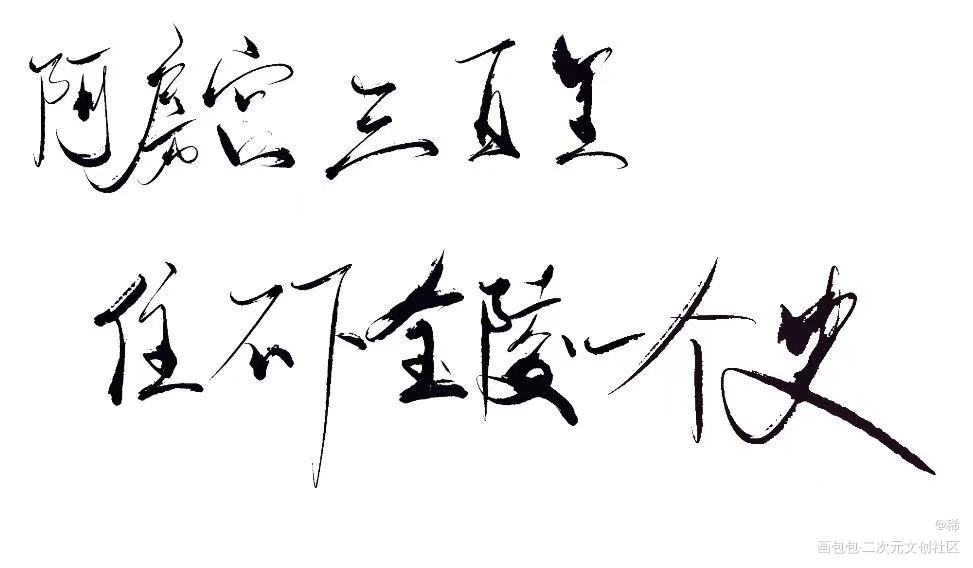 阿房宫三百里
住不下金陵一个史
@稀
画包包·二次元文创社区